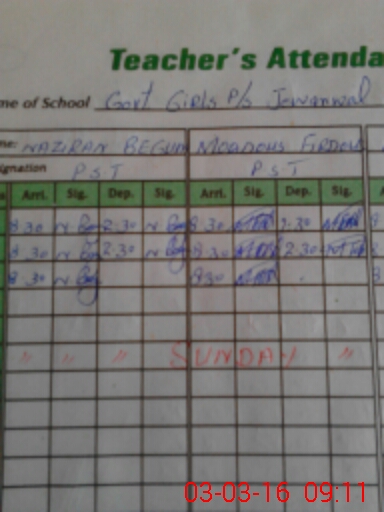 Teacher's Attenda
me of School Govt Girls P/s Jowanwal
me: NAZIRAN BEGUM MOADOUS FIRDOU
signation P S T P S T
Arri. Sig. Dep. Sig. Arri. Sig. Dep. Sig. A
8 30 N. Beg 2:30 N. Beg 8:30 2:30
8 30 N. Beg 2.30 N. Beg 8:30 2:30
8 30 N. Beg 830
" " " SUNDAY "
03-03-16 09:11